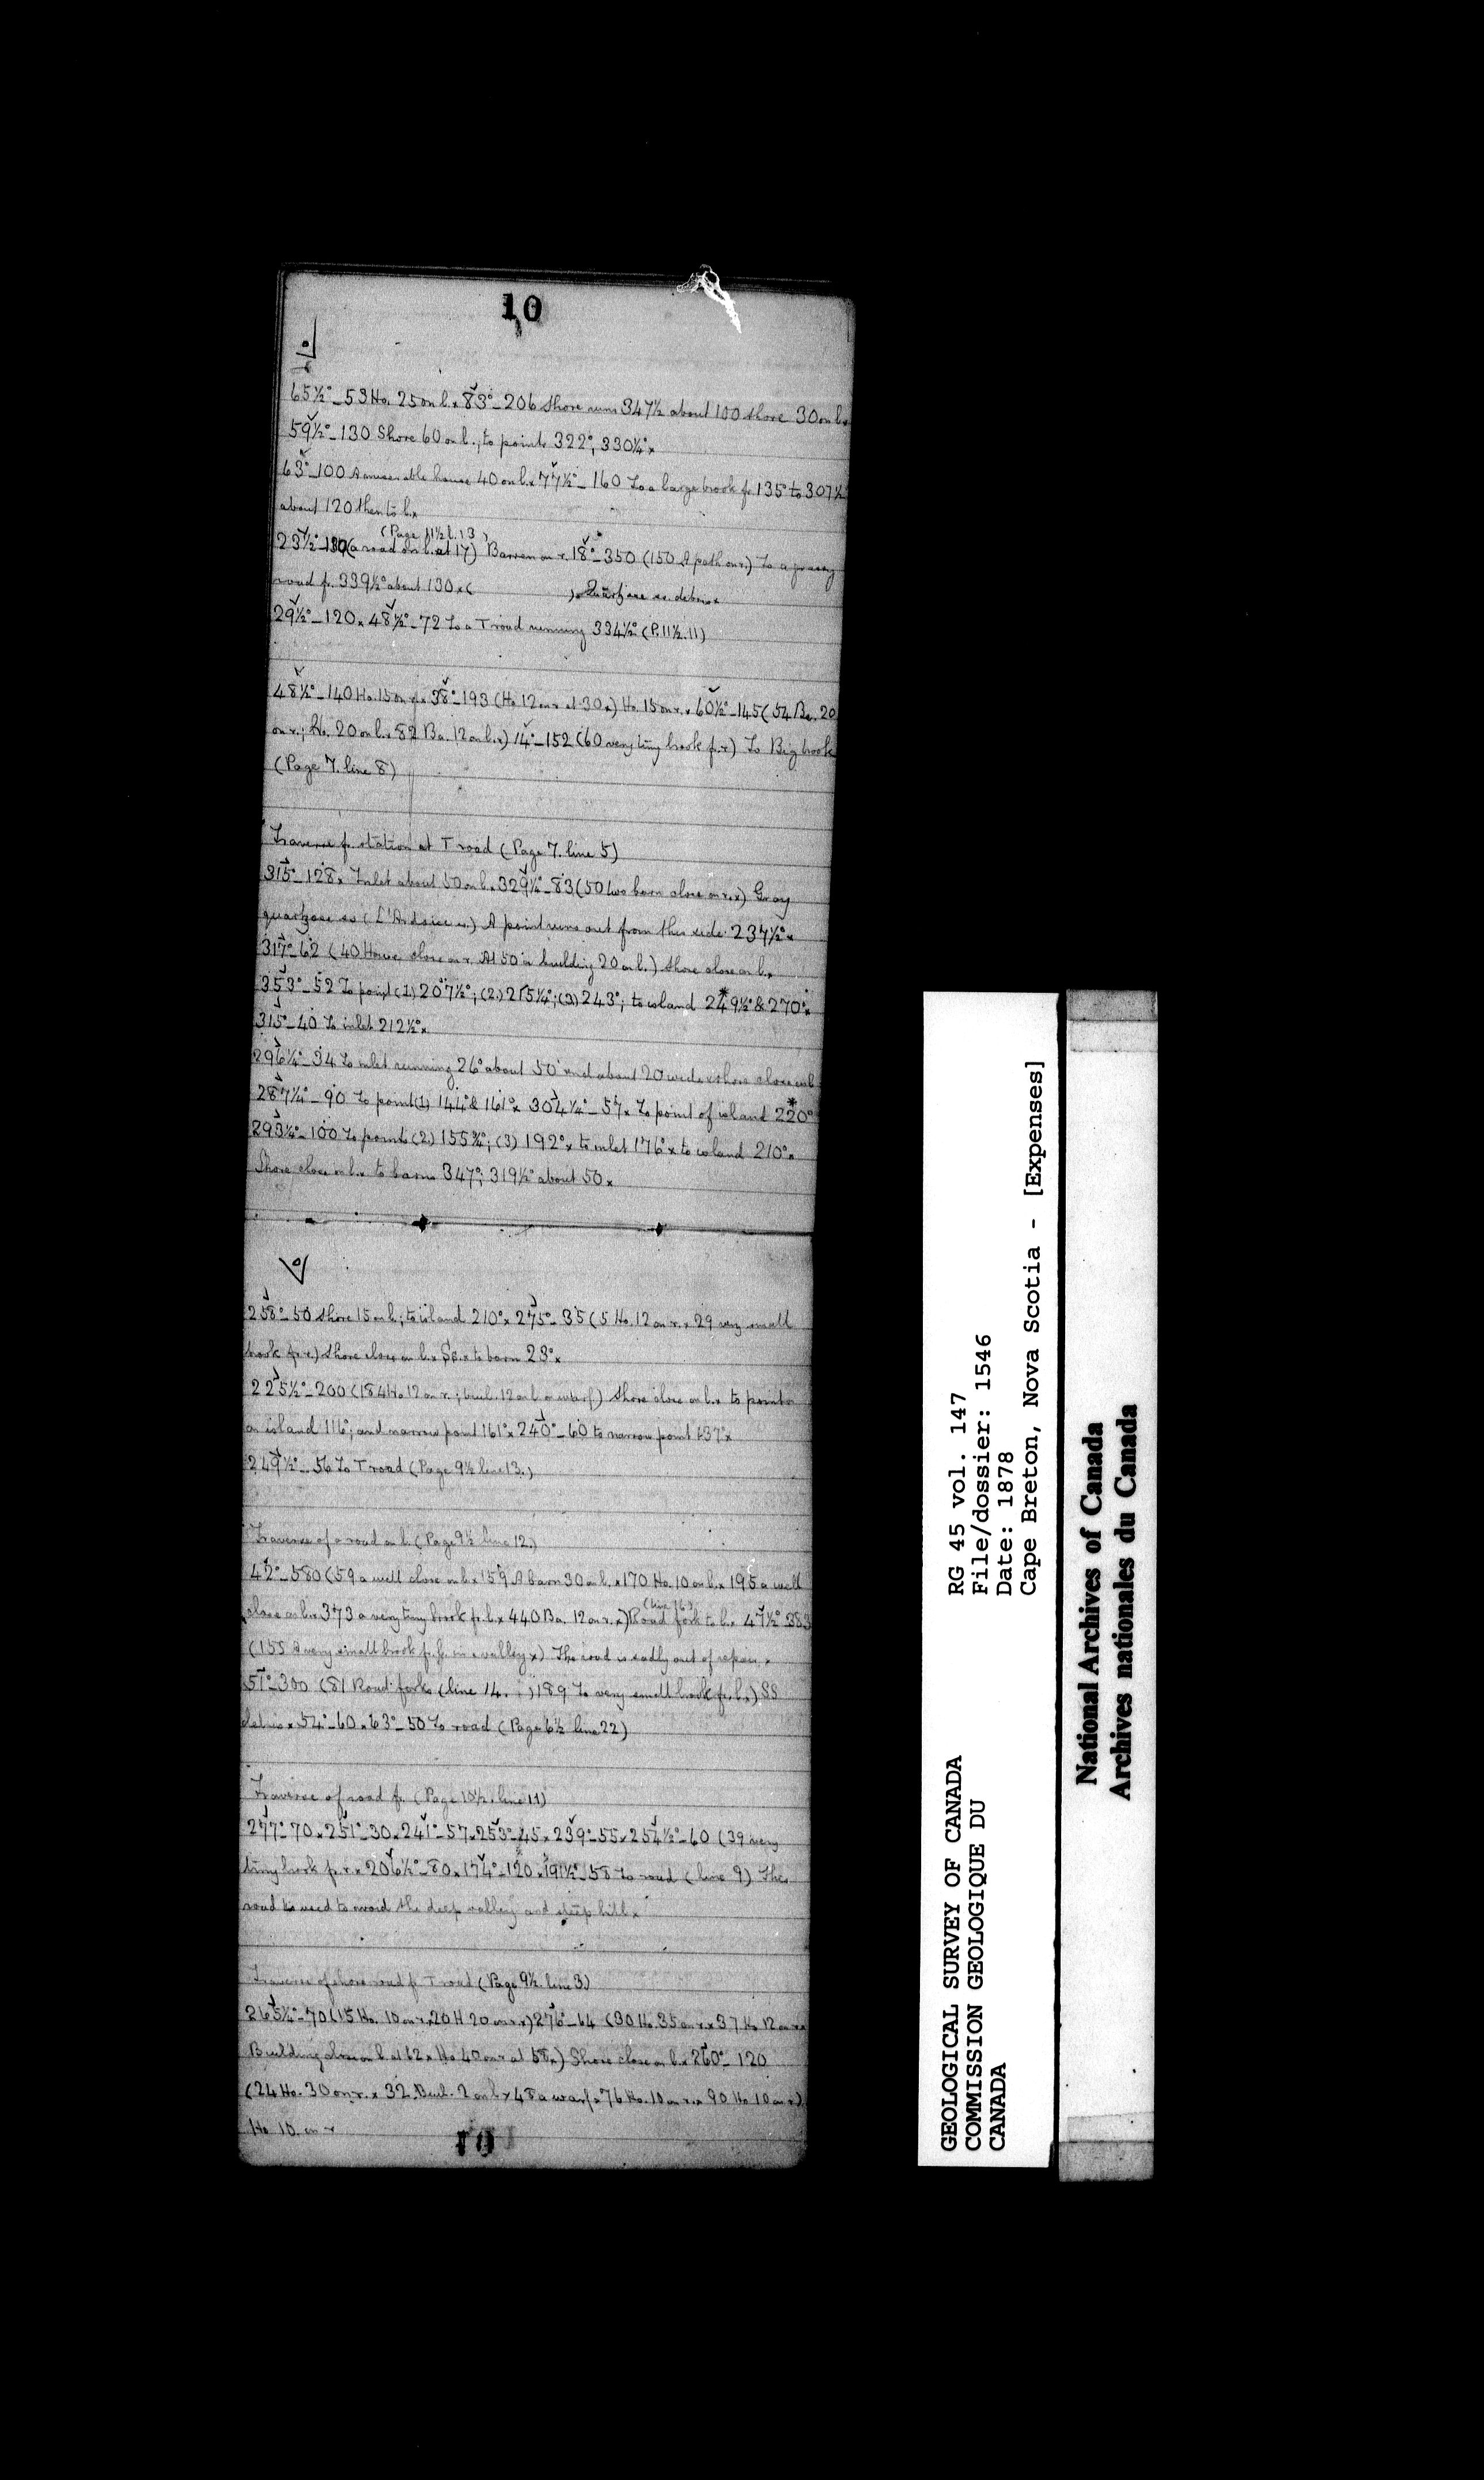 10
65½°_53 Ho. 25 on l. x 83°_206 Shore runs 347½ about 100 shore 30 on l. x
59½°_130 Shore 60 on l.; to points 322°, 330¼° x
63°_100 A miserable house 40 on l. x 77½°_160 To a large brook fr. 135° to 307½
about 120 then to l. x
(Page 11½ l. 13)
23½°_130 (a road on l. at 17) Barren on r. 18°_350 (150 A path on r.) To a grassy
road fr. 339½° about 130 x ( ) x Quartzose ss debris x
29½°_120 x 48½°_72 To a T road running 334½° (P. 11½. 11)
48½°_140 Ho. 15 on r. x 38°_193 (Ho 12 on r at 30 x) Ho. 15 on r. x 60½°_145 (54 Ba. 20
on r.; Ho. 20 on l. x 82 Ba. 12 on l. x) 14°_152 (60 very tiny brook fr. r) To Big brook
(Page 7. line 8)
Traverse fr. station at T road (Page 7. line 5)
315°_128 x Inlet about 50 on l. x 329¼°_83 (50 two barn close on r. x) Gray
quartzose ss (L'Ardoise ss.) A point runs out from this side 237½° x
317°_62 (40 House close on r. At 50 a building 20 on l.) Shore close on l. x
353°_52 To point (1) 207½°; (2.) 215¼°; (3) 243°; to island 249½° & 270° x
315°_40 To inlet 212½° x
296¼°_34 To inlet running 26° about 50 and about 20 wide x Shore close on l
287¼°_90 To point (1) 144° & 161° x 304¼°_57 x To point of island 220°
293¼°_100 To points (2.) 155¾°; (3) 192° x to inlet 176° x to island 210° x
Shore close on l. x to barns 347°; 319½° about 50 x
258°_50 Shore 15 on l.; to island 210° x 275°_35 (5 Ho. 12 on r. x 29 very small
brook fr. r.) Shore close on l. x Ss. x to barn 23° x
225½°_200 (184 Ho 12 on r.; buil. 12 on l on warf) Shore close on l. x to points
on island 116°; and narrow point 161° x 240°_60 to narrow point 137° x
249½°_56 To T road (Page 9½ line 13.)
Traverse of a road on l. (Page 9½ line 12.)
42°_580 (59 a well close on l. x 159 A barn 30 on l. x 170 Ho. 10 on l. x 195 a well
(line 16)
close on l. x 373 a very tiny brook fr. l. x 440 Ba. 12 on r. x) Road fork to l. x 47½°_383
(155 A very small brook fr. l. in a valley x) The road is sadly out of repair x
51°_300 (81 Road forks (line 14. ) 189 To very small brook fr. l. x) SS
debris x 54°_60 x 63°_50 To road (Page 6½ line 22)
Traverse of road fr. (Page 10½. line 11)
277°_70 x 251°_30 x 241°_57 x 253°_45 x 239°_55 x 254½°_60 (39 very
tiny brook fr. r. x 206½°_80 x 174°_120 x 191½°_58 To road (line 9) This
road is used to avoid the deep valley and steep hill x
Traverse of shore road fr. T road (Page 9½. line 3)
265¼°_70 (15 Ho. 10 on r. 20 H 20 on r. x) 276°_64 (30 Ho. 35 on r. x 37 Ho 12 on r. x
Building close on l. at 62 x Ho 40 on r at 58 x) Shore close on l. x 260°_120
(24 Ho. 30 on r. x 32. Buil. 2 on l x 48 a warf x 76 Ho. 10 on r. x 90 Ho 10 on r.)
Ho 10. on r
10
GEOLOGICAL SURVEY OF CANADA
COMMISSION GEOLOGIQUE DU
CANADA
RG 45 vol. 147
File/dossier: 1546
Date: 1878
Cape Breton, Nova Scotia - [Expenses]
National Archives of Canada
Archives nationales du Canada